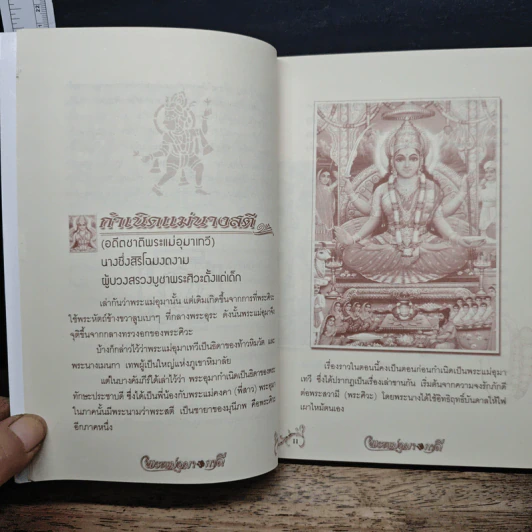 กำเนิดแม่นางสตี
(อดีตชาติพระแม่อุมาเทวี)
นางซึ่งสิริโฉมงดงาม
ผู้บวงสรวงบูชาพระศิวะตั้งแต่เด็ก
เล่ากันว่าพระแม่อุมานั้น แต่เดิมเกิดขึ้นจากการที่พระศิวะ
ใช้พระหัตถ์ข้างขวาลูบเบาๆ ที่กลางพระอุระ ดังนั้นพระแม่อุมาจึง
จุติขึ้นจากกลางทรวงอกของพระศิวะ
บ้างก็กล่าวไว้ว่าพระแม่อุมาเทวีเป็นธิดาของท้าวหิมวัต และ
พระนางเมนกา เทพผู้เป็นใหญ่แห่งภูเขาหิมาลัย
แต่ในบางคัมภีร์ได้เล่าไว้ว่า พระอุมากำเนิดเป็นธิดาของพระ
ทักษะประชาบดี ซึ่งได้เป็นพี่น้องกับพระแม่คงคา (พี่สาว) พระอุมา
ในภาคนั้นมีพระนามว่าพระสตี เป็นชายาของมุนีภพ คือพระศิวะ
อีกภาคหนึ่ง
พระแม่อุมาเทวี
11
เรื่องราวในตอนนี้คงเป็นตอนก่อนกำเนิดเป็นพระแม่อุมา
เทวี ซึ่งได้ปรากฏเป็นเรื่องเล่าขานกัน เริ่มต้นจากความจงรักภักดี
ต่อพระสวามี (พระศิวะ) โดยพระนางได้ใช้อิทธิฤทธิ์บันดาลให้ไฟ
เผาไหม้ตนเอง
พระแม่อุมาเทวี